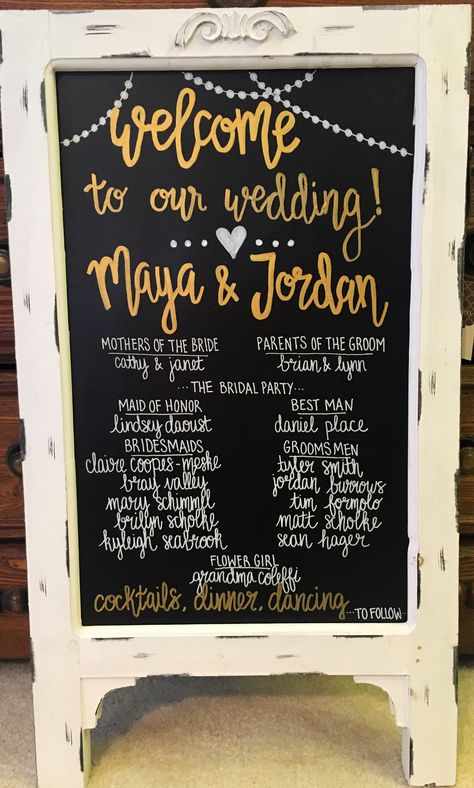 welcome
to our wedding!
Maya & Jordan
MOTHERS OF THE BRIDE
cathy & janet
PARENTS OF THE GROOM
brian & lynn
...THE BRIDAL PARTY...
MAID OF HONOR
lindsey daoust
BRIDESMAIDS
claire coopes-meske
bray valley
mary schimmel
brilyn scholke
kyleigh seabrook
BEST MAN
daniel place
GROOMSMEN
tyler smith
jordan burrows
tim formolo
matt scholke
sean hager
FLOWER GIRL
grandma coleffi
cocktails, dinner, dancing...TO FOLLOW...